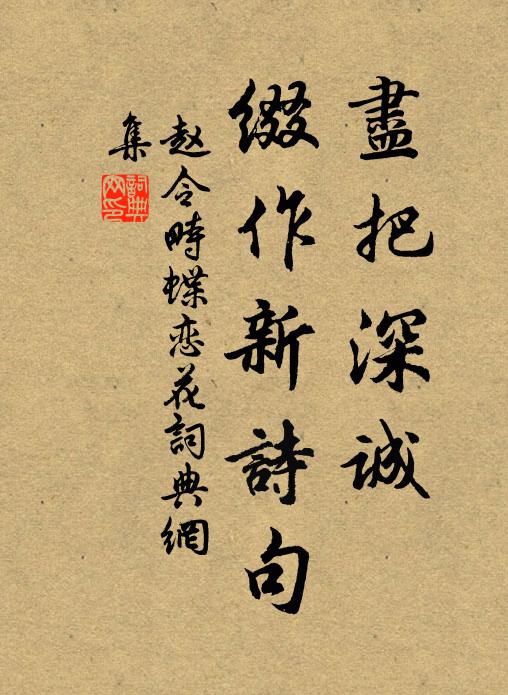 盡把深誠
綴作新詩句
赵令畤蝶恋花詞典網
集
詞典
网印